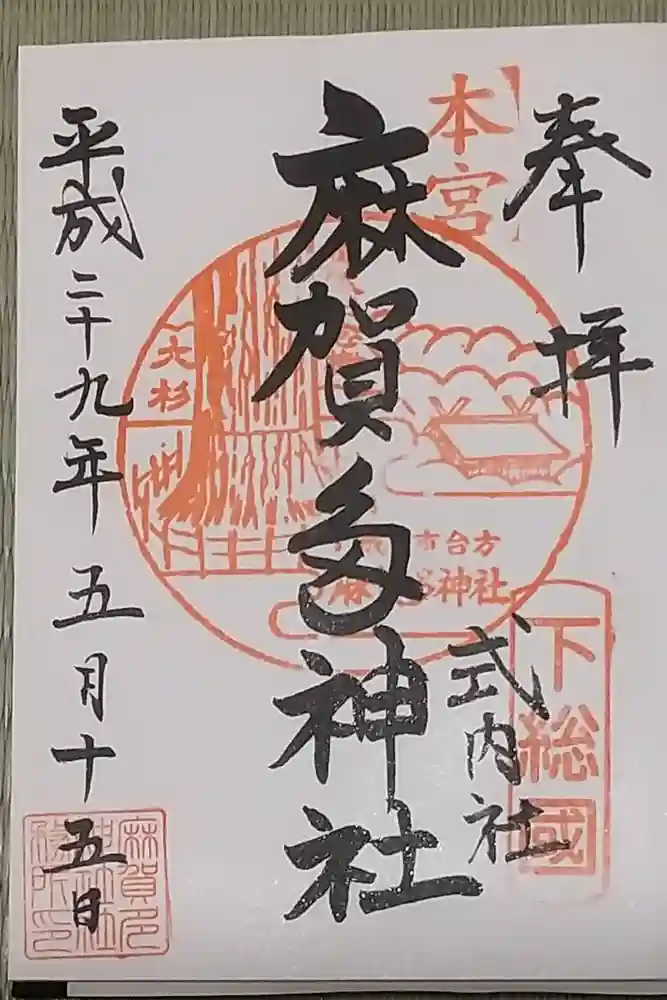 奉拝
本宮
下総國
式内社
麻賀多神社
大杉
市台方
神社
平成二十九年五月十五日